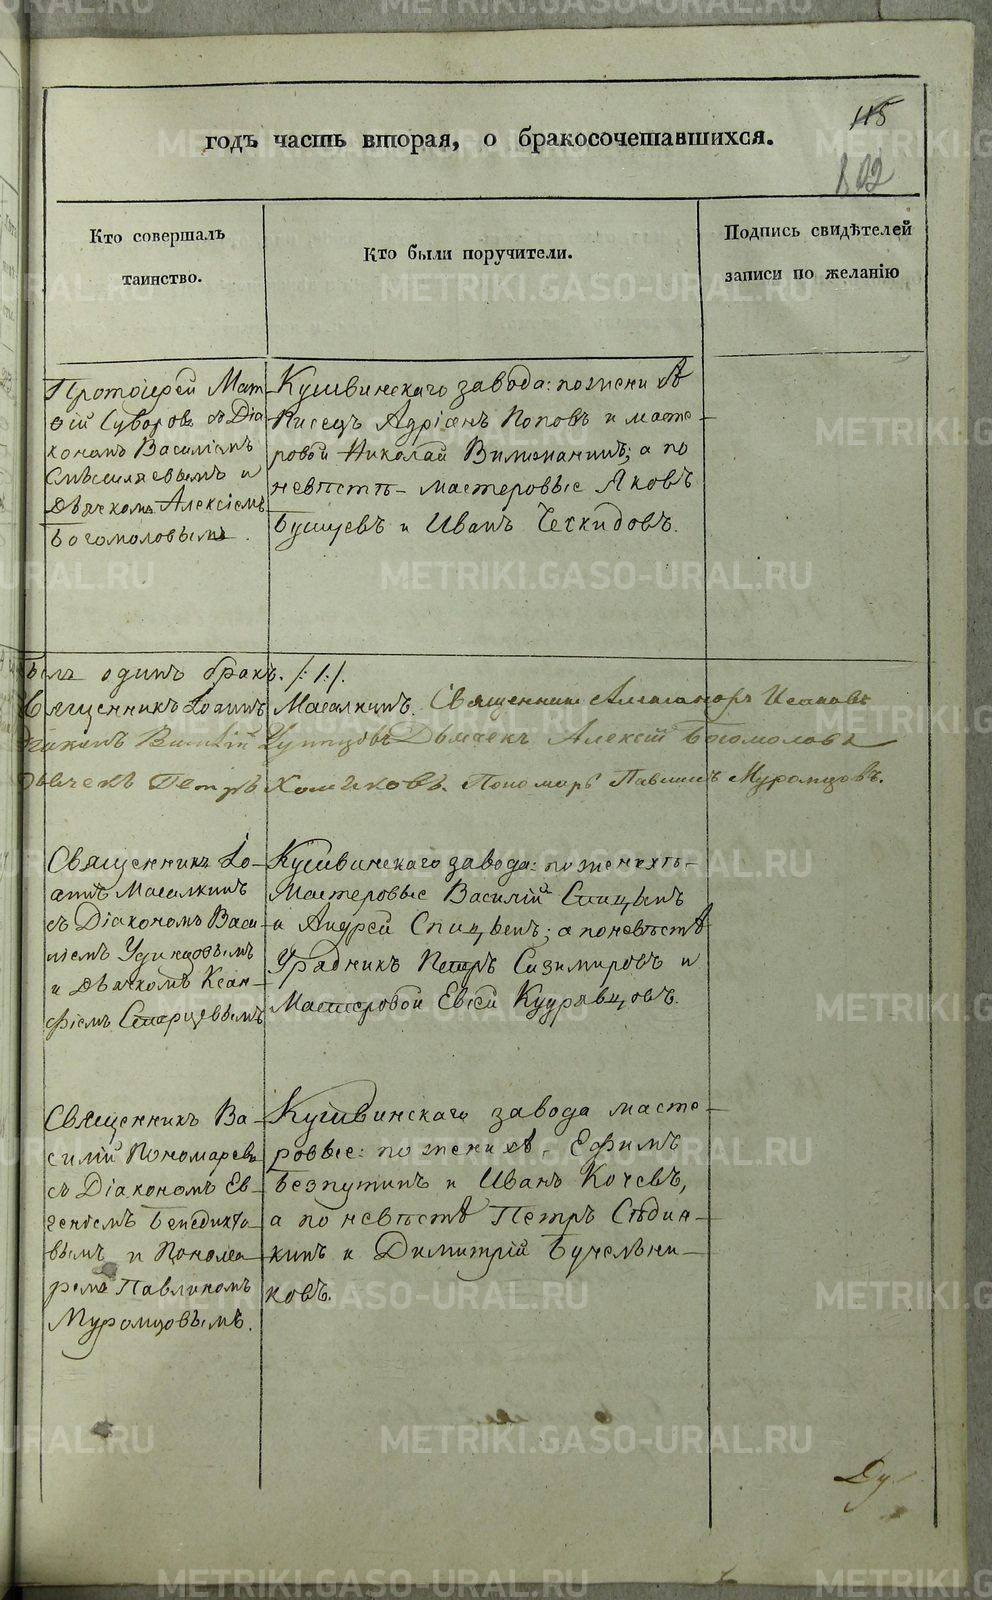 115
годъ часть вторая, о бракосочетавшихся.
102
Кто совершалъ
таинство.
Кто были поручители.
Подпись свидѣтелей
записи по желанію
Протоіерей Мат-
ѳій Суворовъ съ Діа-
кономъ Василіемъ
и
дьячкомъ Алексіемъ
Богомоловымъ.
Кушвинскаго завода: по женихѣ
Писецъ Адріанъ Поповъ и масте-
ровой Николай; а по
невѣстѣ - мастеровые Яковъ
и Иванъ Чехкидовъ.
былъ одинъ бракъ. /:1:/.
Священникъ Іоаннъ Масалкинъ. Священникъ Александръ
Дьячекъ Алексій Богомоловъ
Дьячекъ Петръ Хомяковъ. Пономарь Павлинъ Муромцовъ.
Священникъ Іо-
аннъ Масалкинъ
съ Діакономъ Васи-
ліемъ Удинцовымъ
и дьячкомъ Ксан-
фіемъ Старцевымъ
Кушвинскаго завода: по женихѣ-
Мастеровые Василій Спицынъ
и Андрей Спицынъ; а по невѣстѣ
Урядникъ Петръ Сизимировъ и
Мастеровой Евсей Кудрявцовъ.
Священникъ Ва-
силій Пономаревъ
съ Діакономъ Ев-
геніемъ Бенедикто-
вымъ и Понома-
ремъ Павлиномъ
Муромцовымъ.
Кушвинскаго завода масте-
ровые: по женихѣ - Ефимъ
Безпутинъ и Иванъ Кочевъ,
а по невѣстѣ Петръ Сѣдин-
кинъ и Димитрій Бучельни-
ковъ.
Ду
METRIKI.GASO-URAL.RU